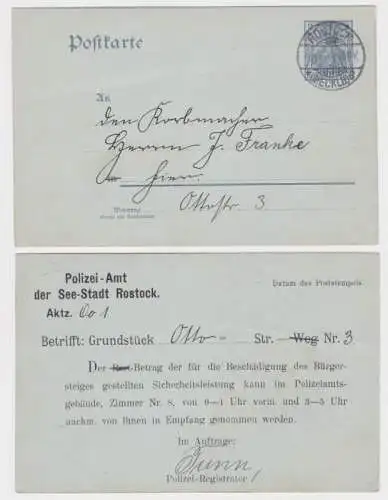 Postkarte
ROSTOCK
(MECKLB)
An
den Korbmacher
Herrn J. Franke
in hier.
Wohnung
Ottostr 3
Polizei-Amt
der See-Stadt Rostock.
Datum des Poststempels.
Aktz. Oo 1
Betrifft: Grundstück Otto- Str. Weg Nr. 3
Der Rest-Betrag der für die Beschädigung des Bürger-
steiges gestellten Sicherheitsleistung kann im Polizeiamts-
gebäude, Zimmer Nr. 8, von 9—1 Uhr vorm. und 3—5 Uhr
nachm. von Ihnen in Empfang genommen werden.
Im Auftrage:
Polizei-Registrator